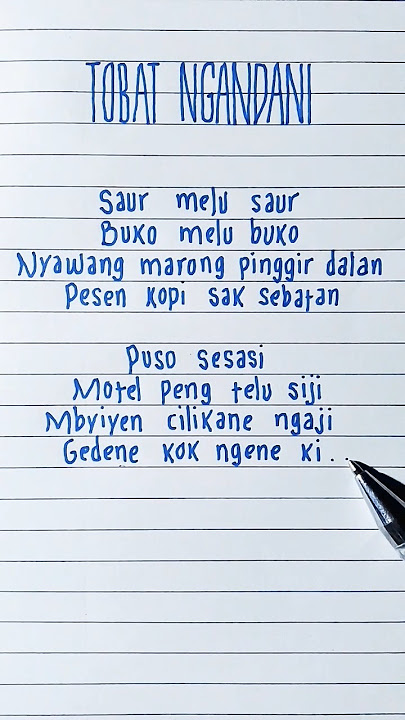 TOBAT NGANDANI
Saur melu saur
Buko melu buko
Nyawang marong pinggir dalan
Pesen kopi sak sebatan
Puso sesasi
Motel peng telu siji
Mbyiyen cilikane ngaji
Gedene kok ngene ki..